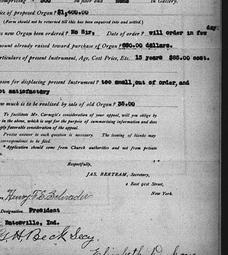 in Gallery.
ice of proposed Organ? $1,400.00
(Form should not be returned till this has been enquired into and settled.)
new Organ been ordered? No Sir, Date of order? will order in few day.
mount already raised toward purchase of Organ? 650.00 dollars.
articulars of present Instrument, Age, Cost Price, Etc. 15 years $65.00 cost.
ason for displacing present Instrument? too small, out of order, and
ot satisfactory
ow much is to be realised by sale of old Organ? 35.00
To facilitate Mr. Carnegie's consideration of your appeal, will you oblige by
in the above, which is sent for the purpose of summarising information and does not
ply favorable consideration of the appeal.
Precise answer to each question is necessary. The issuing of blanks may
correspondence to be returned.
* Application should come from Church authorities and not from private
Respectfully,
JAS. BERTRAM, Secretary,
2 East 91st Street,
New York.
Henry F. C. Schrader
Designation President
Batesville, Ind.
H Beck Secy